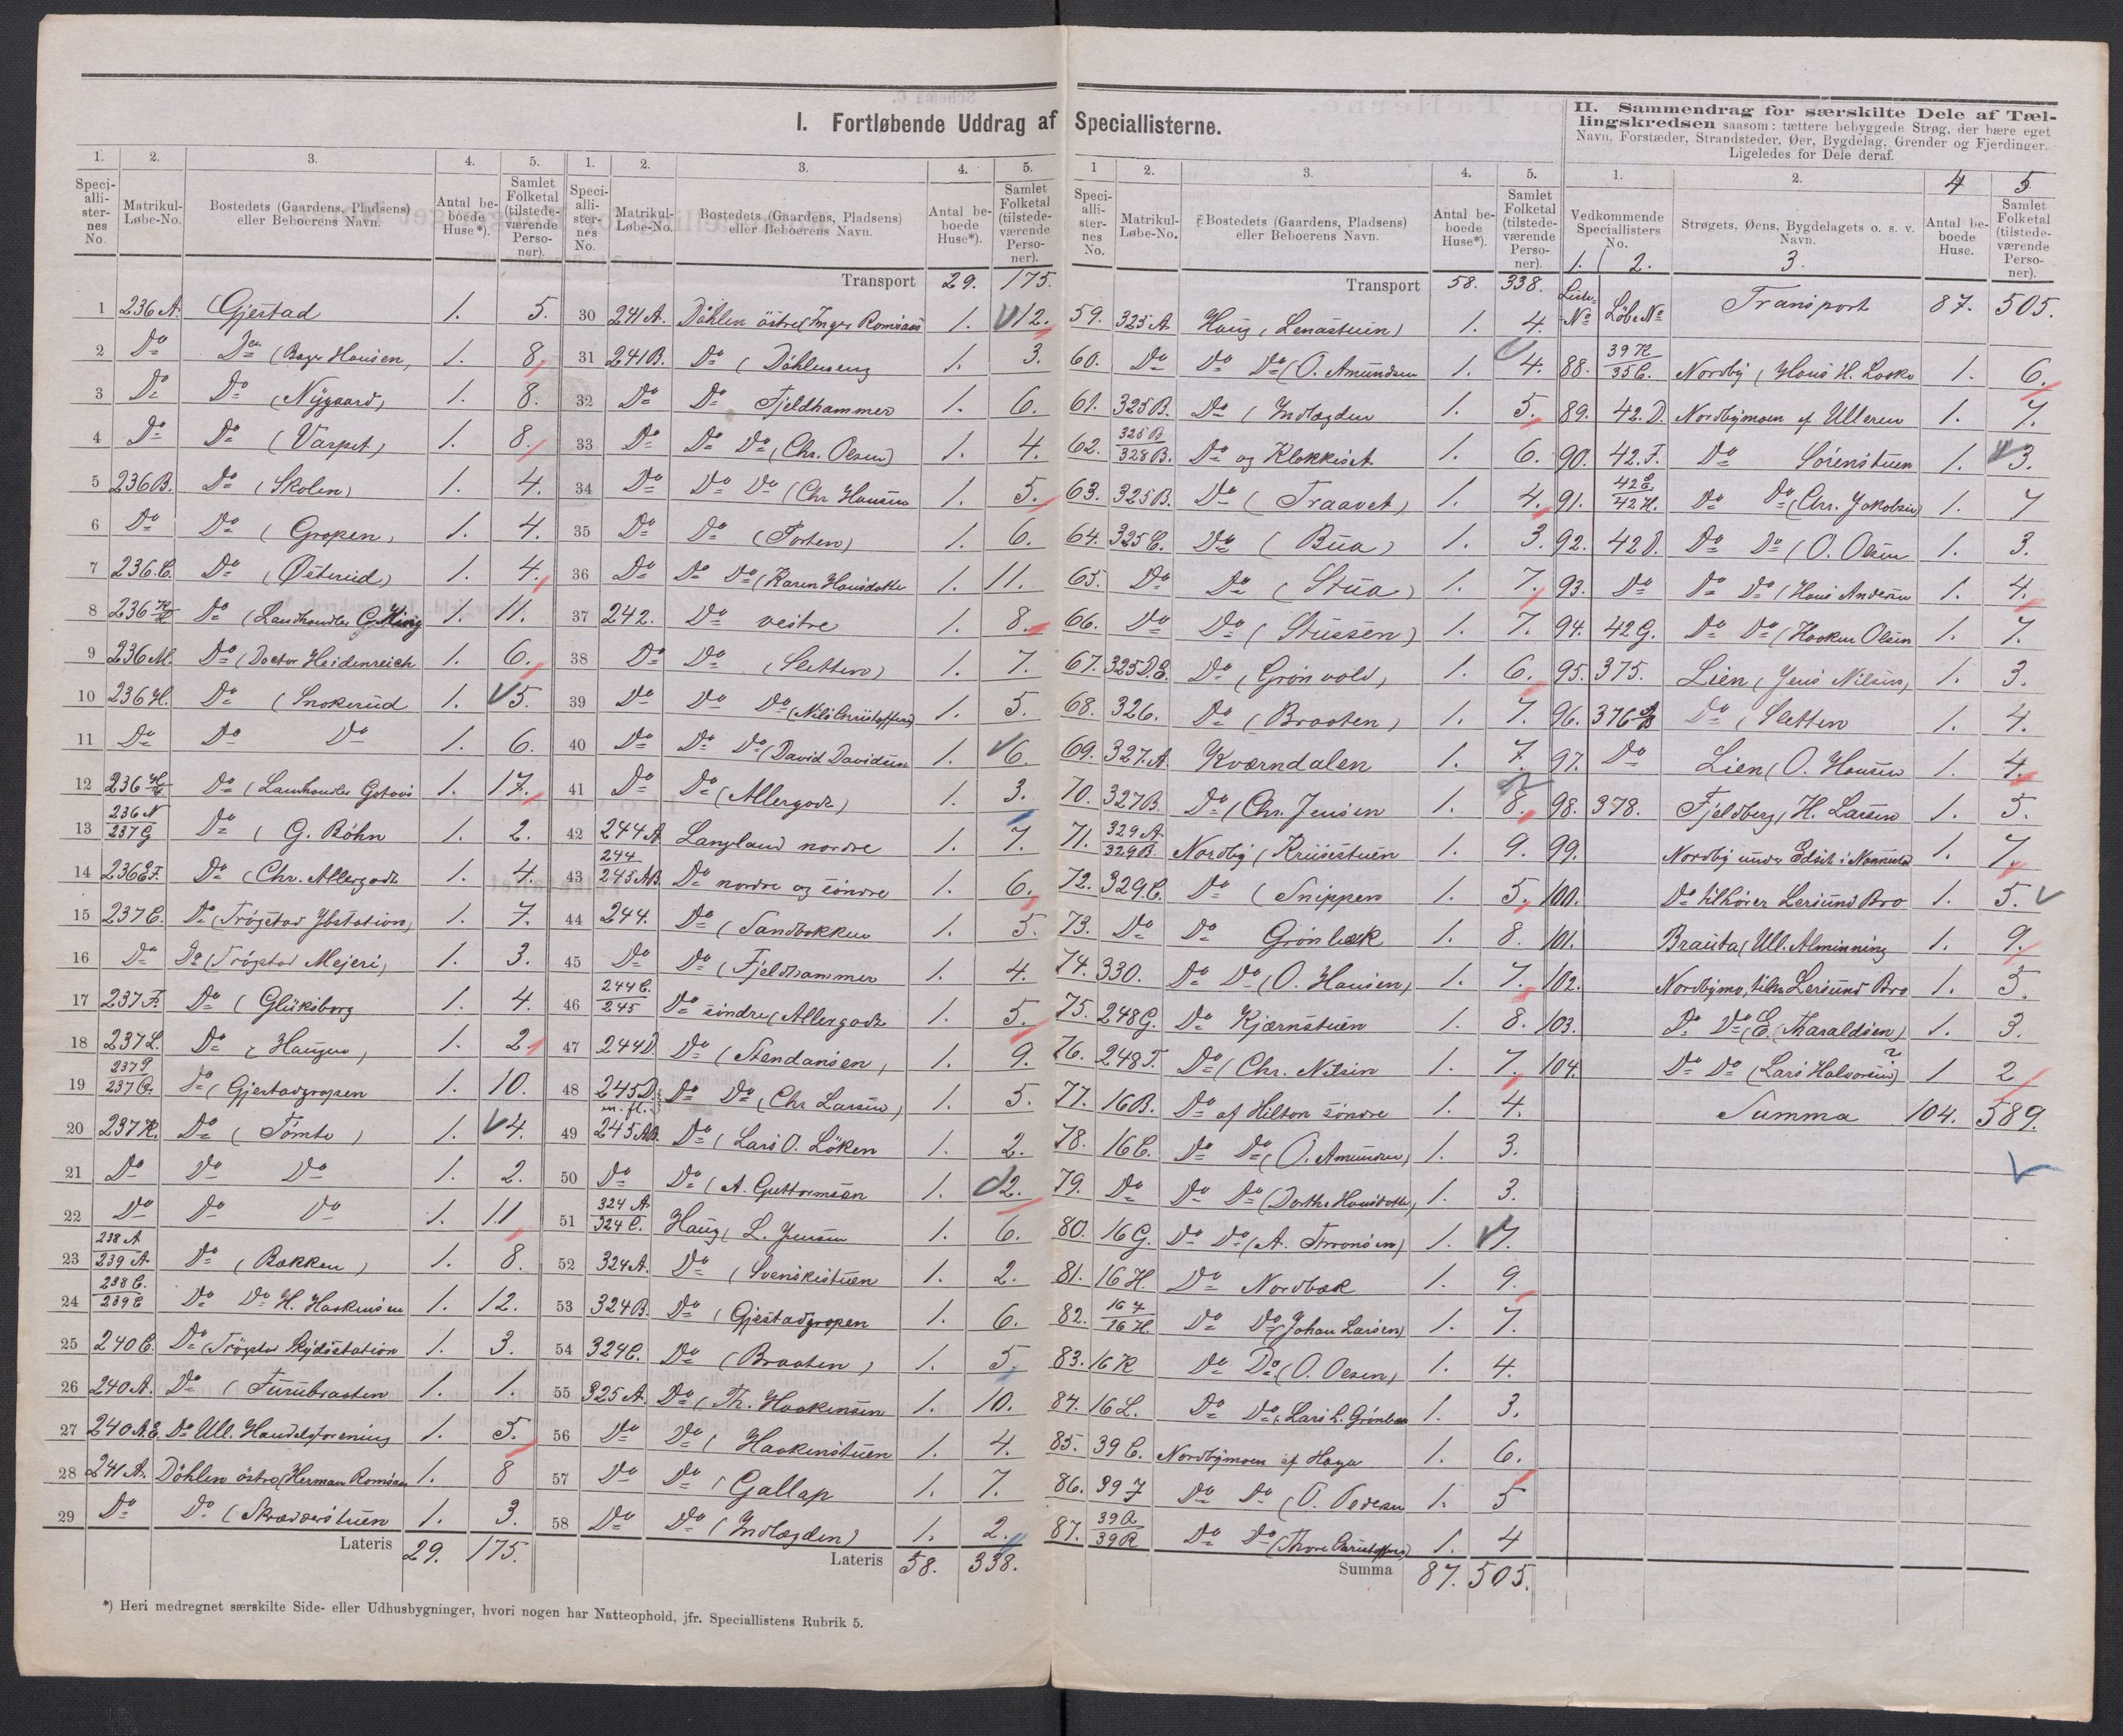 I. Fortløbende Uddrag af Speciallisterne.
II. Sammendrag for særskilte Dele af Tæl-
lingskredsen saasom: tættere bebyggede Strøg, der bære eget
Navn, Forstæder, Strandsteder, Øer, Bygdelag, Grender og Fjerdinger.
Ligeledes for Dele deraf.
1. 2. 3. 4. 5.
Speci-alli-ster-nes No. Matrikul-Løbe-No. Bostedets (Gaardens, Pladsens) eller Beboerens Navn. Antal be-boede Huse*). Samlet Folketal (tilstede-værende Perso-ner).
1 236 A. Gjestad 1. 5.
2 Do Do (Bager Hansen, 1. 8.
3 Do Do (Nygaard) 1. 8.
4 Do Do (Varpet) 1. 8.
5 236 B. Do (Skolen) 1. 4.
6 Do Do (Gropen, 1. 4.
7 236 C. Do (Østerud) 1. 4.
8 236 Do (Landhandler 1. 11.
9 236 M. Do (Doctor Heidenreich 1. 6.
10 236 H. Do (Snokerud 1. 5.
11 Do Do Do 1. 6.
12 236 Do (Landhandler 1. 17.
13 236 N 237 G Do (G. Böhn 1. 2.
14 236 E F. Do (Chr. Allergodt 1. 4.
15 237 C. Do (Trögstad 1. 7.
16 Do Do (Trögstad Mejeri, 1. 3.
17 237 F. Do (Glüksborg 1. 4.
18 237 L. Do (Haugen, 1. 2
19 237 P 237 Q. Do (Gjestadgropen 1. 10.
20 237 K. Do (Tömte) 1. 4.
21 Do Do Do 1. 2.
22 Do Do Do 1. 11
23 238 A 239 A Do (Bakken) 1. 8.
24 238 C. 239 C Do Do H. Haakensen 1. 12.
25 240 C. Do (Trögstad Skydsstation 1. 3.
26 240 A. Do (Furubraaten 1. 1.
27 240 A. E. Do Ull. Handelsforening 1. 5.
28 241 A. Döhlen östre (Herman Romsaas 1. 8
29 Do Do (Skrædderstuen 1. 3.
Lateris 29. 175.
1. 2. 3. 4. 5.
Speci-alli-ster-nes No. Matrikul-Løbe-No. Bostedets (Gaardens, Pladsens) eller Beboerens Navn. Antal be-boede Huse*). Samlet Folketal (tilstede-værende Perso-ner).
Transport 29. 175.
30 241 A. Döhlen östre (Inger Romsaas 1. 12.
31 241 B. Do (Döhleneng 1. 3.
32 Do Do Fjeldhammer 1. 6.
33 Do Do Do (Chr. Olsen) 1. 4.
34 Do Do Do (Chr Hansen 1. 5.
35 Do Do (Torten) 1. 6.
36 Do Do Do (Karen Hansdatter 1. 11.
37 242. Do vestre 1. 8.
38 Do Do (Sletten) 1. 7.
39 Do Do Do (Nils Christoffersen) 1. 5.
40 Do Do Do (David Davidsen 1. 6.
41 Do Do (Allergodt) 1. 3.
42 244 A Langland nordre 1. 7.
43 244 245 AB. Do nordre og söndre 1. 6.
44 244. Do (Sandbakken 1. 5.
45 Do Do (Fjeldhammer 1. 4.
46 244 C. 245 Do söndre (Allergodt 1. 5.
47 244 D. Do (Stendansen, 1. 9.
48 245 D. m. fl. Do Do (Chr Larsen) 1. 5.
49 245 AB. Do (Lars O. Löken 1. 2.
50 Do Do (A. Guttormsen 1. 2.
51 324 A. 324 C. Haug (L. Jensen 1. 6.
52 324 A. Do (Svenskestuen 1. 2.
53 324 B. Do (Gjestadgropen 1. 6.
54 324 C. Do (Braaten) 1. 5.
55 325 A. Do (Th. Haakensen 1. 10.
56 Do Do (Haakenstuen 1. 4.
57 Do Do (Gallap 1. 7.
58 Do Do (Indlægden) 1. 2.
Lateris 58. 338.
1 2. 3. 4. 5.
Speci-alli-ster-nes No. Matrikul-Løbe-No. Bostedets (Gaardens, Pladsens) eller Beboerens Navn. Antal be-boede Huse*). Samlet Folketal (tilstede-værende Perso-ner).
Transport 58. 338.
59. 325 A Haug (Lenastuen) 1. 4.
60. Do Do Do (O. Amundsen 1. 4.
61. 325 B. Do (Indlægden 1. 5.
62. 325 B 328 B. Do og Klokkset 1. 6.
63. 325 B. Do (Traavet) 1. 4.
64. 325 C. Do (Bua) 1. 3.
65. Do Do (Stua) 1. 7.
66. Do Do (Stussen) 1. 7.
67. 325 D. E. Do (Grönvold, 1. 6.
68. 326. Do (Braaten) 1. 7.
69. 327. A. Kværndalen 1. 7.
70. 327 B. Do (Chr. Jensen 1. 8.
71. 329 A. 329 B. Nordby (Kriisestuen 1. 9.
72. 329 C. Do (Snippen 1. 5.
73. Do Do Grönbæk 1. 8.
74. 330. Do Do (O. Hansen, 1. 7.
75. 248 G. Do Kjærnstuen 1. 8.
76. 248 F. Do (Chr. Nilsen 1. 7.
77. 16 B. Do af Hilton söndre 1. 4.
78. 16 C. Do Do (O. Amundsen) 1. 3.
79. Do Do Do (Dorthe Hansdatter, 1. 3.
80. 16 G. Do Do (A. Tronsen) 1. 7.
81. 16 H. Do Nordbæk 1. 9.
82. 16 H. Do Do (Johan Larsen) 1. 7.
83. 16 K Do Do (O. Olsen, 1. 4.
84. 16 L. Do Do (Lars L. Grönbæk 1. 3.
85. 39 C. Nordbymoen af Haga 1. 6.
86. 39 J Do Do (P. Pedersen 1. 5
87. 39 Q 39 R Do Do (Thore Christoffersen) 1. 4
Summa 87. 505.
1. 2. 4 5
Vedkommende Speciallisters No. Strøgets, Øens, Bygdelagets o. s. v. Navn. Antal be-boede Huse. Samlet Folketal (tilstede-værende Perso-ner).
1. 2. 3.
Liste No Löbe No Transport 87. 505.
88. 39 K 35 C. Nordby (Hans H. 1. 6.
89. 42. D. Nordbymoen af Ulleren 1. 7.
90. 42. F. Do Sörenstuen 1. 3.
91. 42 E. 42 H. Do Do (Chr. Jakobsen) 1. 7
92. 42 D. Do Do (O. Olsen 1. 3.
93. Do Do Do (Hans Andersen 1. 4.
94. 42 G. Do Do (Haaken Olsen 1. 7.
95. 375. Lien (Jens Nilsen, 1. 3.
96. 376 AB Do (Sletten 1. 4.
97. Do Lien (O. Hansen 1. 4.
98. 378. Fjeldberg (H. Larsen 1. 5.
99. Nordby under Edsit i Nannestad 1. 7.
100. Do tilhörer Lersund Bro 1. 5.
101. Brauta (Ull. Alminning 1. 9.
102. Nordbymo, tilh. Lersund Bro 1. 5.
103. Do Do (E. Tharaldsen) 1. 3.
104. Do Do (Lars Halvorsen) ? 1 2
Summa 104. 589.
*) Heri medregnet særskilte Side- eller Udhusbygninger, hvori nogen har Natteophold, jfr. Speciallistens Rubrik 5.